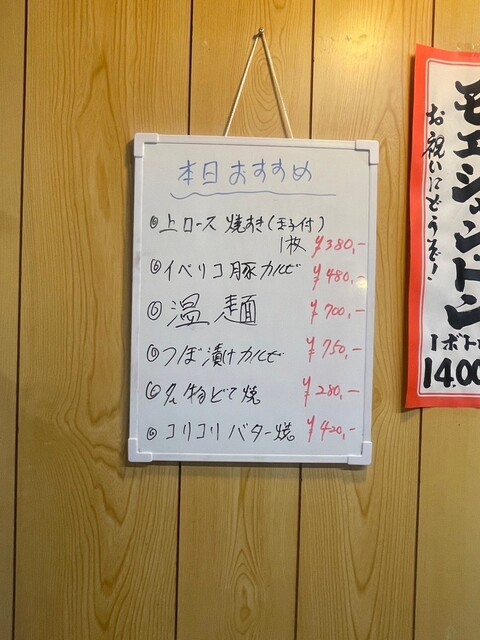 本日おすすめ
◎上ロース焼すき(玉子付)
1枚 ¥380,-
◎イベリコ豚カルビ ¥480,-
◎温麺 ¥700,-
◎つぼ漬けカルビ ¥750,-
◎名物どて焼 ¥280,-
◎コリコリバター焼 ¥420,-
モエシャンドン
お祝いにどうぞ!
1ボト
14,00